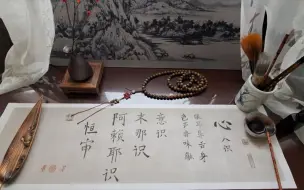 心八识
眼耳鼻舌身
色声香味触
意识
末那识
阿赖耶识
恒审